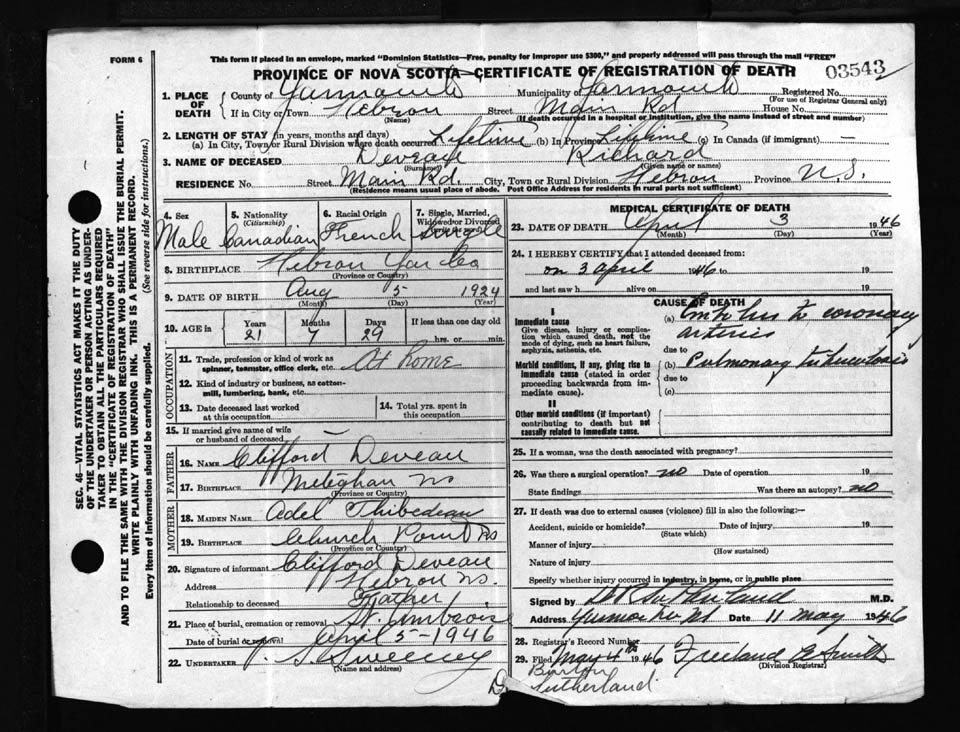 FORM 6
This form if placed in an envelope, marked "Dominion Statistics—Free, penalty for improper use $300," and properly addressed will pass through the mail "FREE"
PROVINCE OF NOVA SCOTIA—CERTIFICATE OF REGISTRATION OF DEATH
03543
1. PLACE OF DEATH County of Yarmouth Municipality of Yarmouth Registered No.
(For use of Registrar General only)
If in City or Town Hebron Street Main Rd House No.
(Name) (If death occurred in a hospital or institution, give the name instead of street and number)
2. LENGTH OF STAY (in years, months and days)
(a) In City, Town or Rural Division where death occurred Lifetime (b) In Province Lifetime (c) In Canada (if immigrant) —
3. NAME OF DECEASED Deveau Richard
(Surname) (Given name or names)
RESIDENCE No. Street Main Rd. City, Town or Rural Division Hebron Province N.S.
(Residence means usual place of abode. Post Office Address for residents in rural parts not sufficient)
4. Sex
Male
5. Nationality
(Citizenship)
Canadian
6. Racial Origin
French
7. Single, Married, Widowed or Divorced
(write the word)
Single
8. BIRTHPLACE Hebron Yar Co
(Province or Country)
9. DATE OF BIRTH Aug 5 1924
(Month) (Day) (Year)
10. AGE in Years Months Days If less than one day old
21 7 29 hrs. or min.
OCCUPATION
11. Trade, profession or kind of work as spinner, teamster, office clerk, etc. At home
12. Kind of industry or business, as cotton-mill, lumbering, bank, etc.
13. Date deceased last worked at this occupation
14. Total yrs. spent in this occupation
15. If married give name of wife or husband of deceased —
FATHER
16. NAME Clifford Deveau
17. BIRTHPLACE Meteghan NS
(Province or Country)
MOTHER
18. MAIDEN NAME Adel Thibedeau
19. BIRTHPLACE Church Point NS
(Province or Country)
20. Signature of informant Clifford Deveau
Address Hebron NS.
Relationship to deceased Father
21. Place of burial, cremation or removal St. Ambroise
Date of burial or removal April 5-1946
22. UNDERTAKER Sweeney
(Name and address)
MEDICAL CERTIFICATE OF DEATH
23. DATE OF DEATH April 3 1946
(Month) (Day) (Year)
24. I HEREBY CERTIFY that I attended deceased from:
on 3 april 1946 to 19
and last saw h alive on 19
CAUSE OF DEATH
I
Immediate cause
Give disease, injury or complication which caused death, not the mode of dying, such as heart failure, asphyxia, asthenia, etc.
(a) coronary
arteries
due to
Morbid conditions, if any, giving rise to immediate cause (stated in order proceeding backwards from immediate cause).
(b) Pulmonary tuberculosis
due to
(c)
II
Other morbid conditions (if important) contributing to death but not causally related to immediate cause.
25. If a woman, was the death associated with pregnancy?
26. Was there a surgical operation? no Date of operation 19
State findings Was there an autopsy? no
27. If death was due to external causes (violence) fill in also the following:—
Accident, suicide or homicide? Date of injury 19
(State which)
Manner of injury
(How sustained)
Nature of injury
Specify whether injury occurred in industry, in home, or in public place
Signed by Sutherland M.D.
Address Yarmouth Date 11 may 1946
28. Registrar's Record Number
29. Filed May 4th 1946 Freeland E Smith
(Division Registrar)
Burton
Sutherland
SEC. 46—VITAL STATISTICS ACT MAKES IT THE DUTY
OF THE UNDERTAKER OR PERSON ACTING AS UNDER-
TAKER TO OBTAIN ALL THE PARTICULARS REQUIRED
IN THE "CERTIFICATE OF REGISTRATION OF DEATH"
AND TO FILE THE SAME WITH THE DIVISION REGISTRAR WHO SHALL ISSUE THE BURIAL PERMIT.
WRITE PLAINLY WITH UNFADING INK. THIS IS A PERMANENT RECORD.
Every item of information should be carefully supplied. (See reverse side for instructions.)